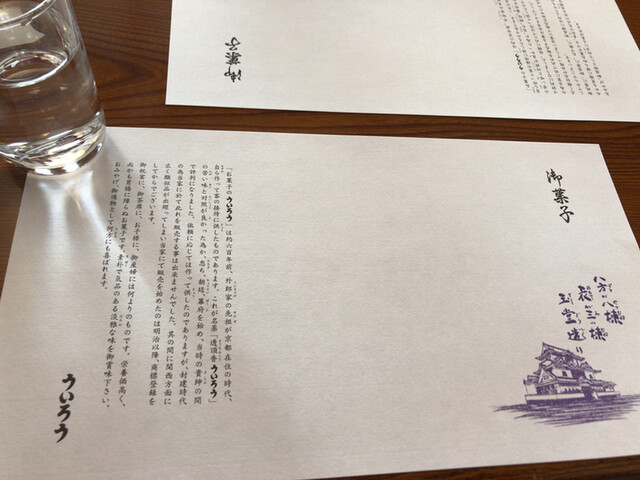 御菓子
八方八棟
玉堂造り
「お菓子のういろう」は約六百年前、外郎家の先祖が京都在住の時代、
自ら作って客の接待に供したものであります。これが名薬「透頂香ういろう」
の苦い味と対照が良かった為か、忽ち、朝廷、幕府を始め、当時の貴紳の間
で評判になりました。依頼に応じては作って供したのでありますが、封建時代
の為当家に於て此れを販売する事は出来ませんでした。其の間に関西方面に
広く類似品が出廻ってしまい当家にて販売を始めたのは明治以降、商標登録を
してからでございます。
御祝宴に、御茶席に、お子様に、御産婦には何よりのものです。栄養価高く、
而かも胃腸に障らぬお菓子です。素朴で気品のある淡雅な味を御賞味下さい。
おみやげ、御進物として何方にも喜ばれます。
ういろう
御菓子